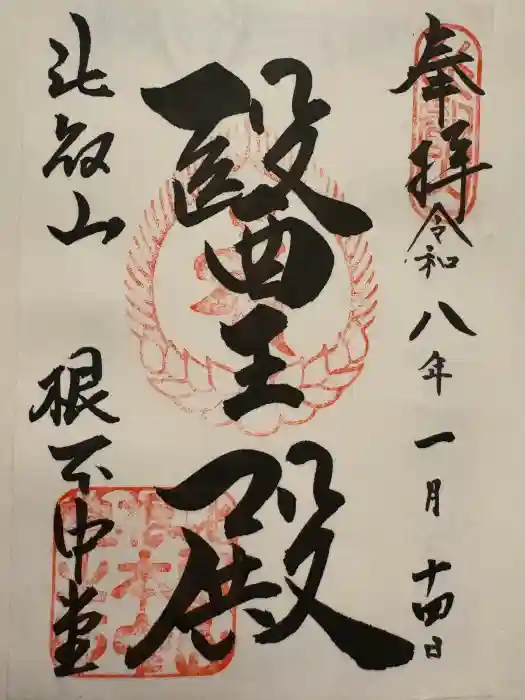 奉拝 令和八年一月十四日
醫王殿
比叡山 根本中堂